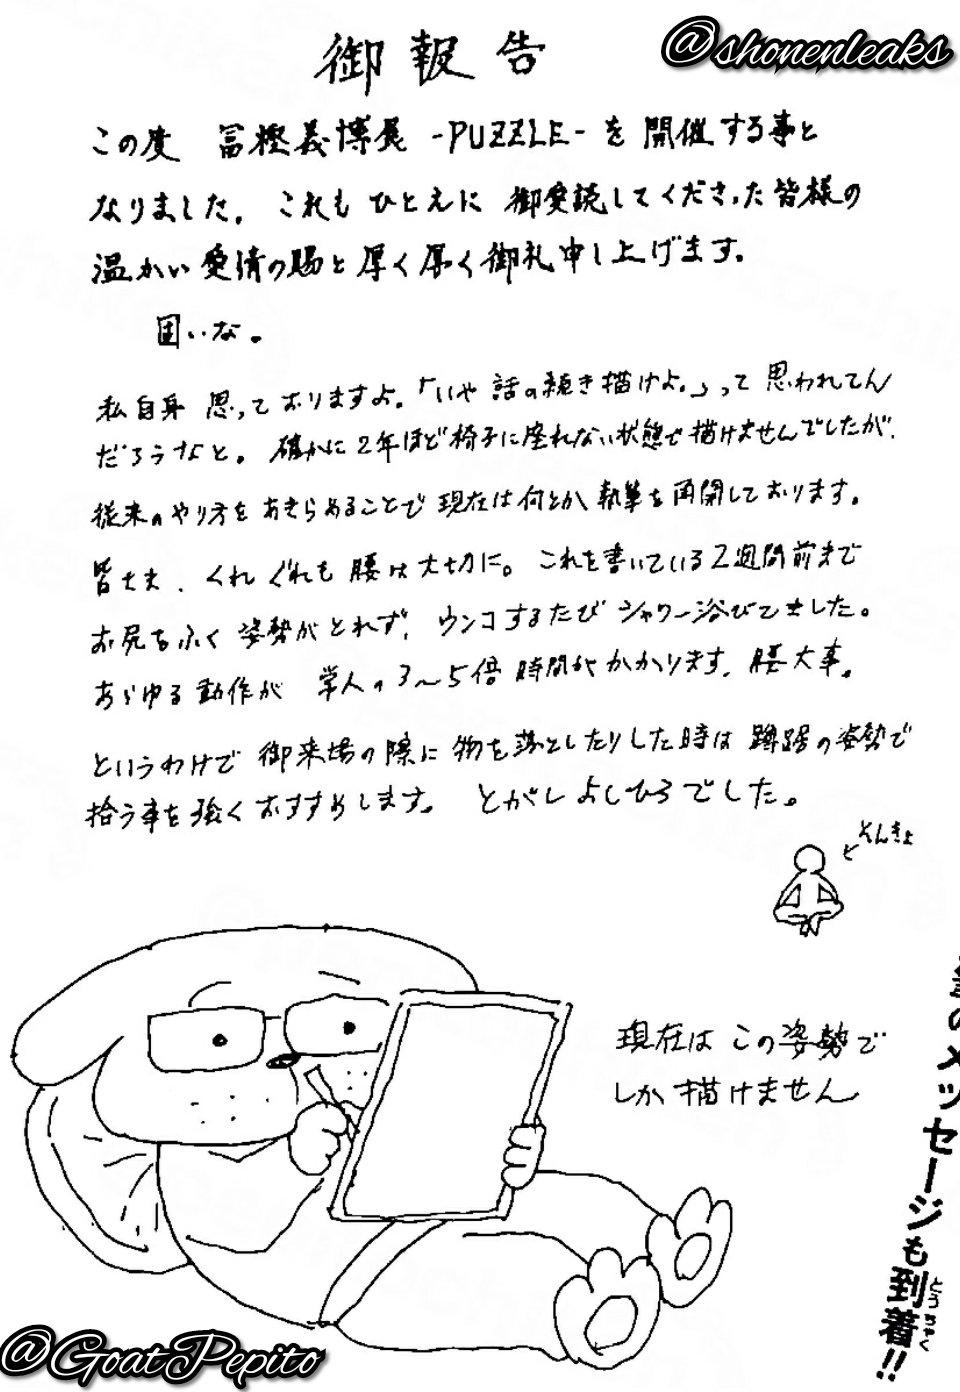 @shonenleaks
御報告
この度 冨樫義博展 -PUZZLE- を開催する事と
なりました。これもひとえに 御愛読してくださった皆様の
温かい愛情の賜と厚く厚く御礼申し上げます。
固いな。
私自身 思っておりますよ。「いや 話の続き描けよ。」って思われてん
だろうなと。確かに2年ほど椅子に座れない状態で描けませんでしたが、
従来のやり方をあきらめることで現在は何とか執筆を再開しております。
皆さま、くれぐれも腰は大切に。これを書いている2週間前まで
お尻をふく姿勢がとれず、ウンコするたびシャワー浴びてました。
あらゆる動作が 常人の3〜5倍時間がかかります。腰大事。
というわけで御来場の際に物を落としたりした時は蹲踞の姿勢で
拾う事を強くおすすめします。とがしよしひろでした。
そんきょ
現在はこの姿勢で
しか描けません
のメッセージも到着!!
とうちゃく
@GoatPepito